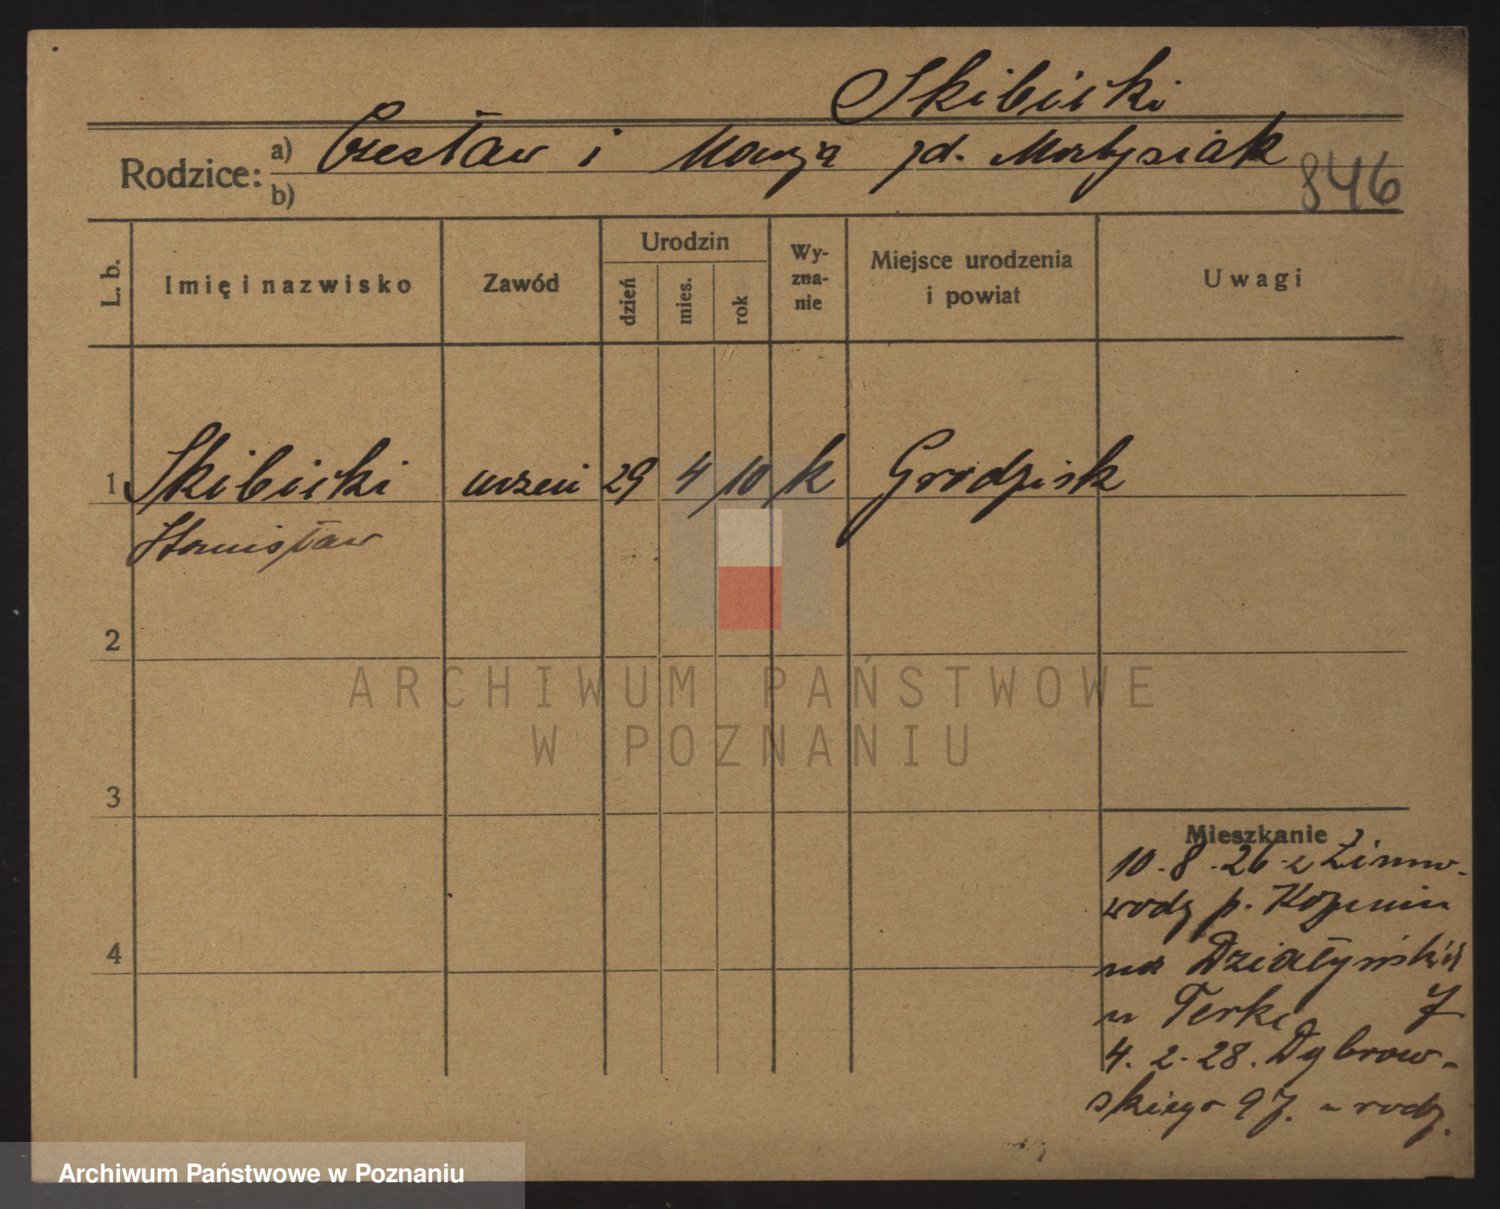 Skibicki
Rodzice: a) Czesław i Marja zd. Matysiak
b)
846
L. b.
Imię i nazwisko
Zawód
Urodzin
dzień
mies.
rok
Wy-
zna-
nie
Miejsce urodzenia
i powiat
Uwagi
1 Skibicki uczeń 29 4 10 k Grodzisk
Stanisław
2
ARCHIWUM PAŃSTWOWE
W POZNANIU
3
Mieszkanie
10.8.26 z Zimno-
wody p. Koźmin
na Działyńskich
u Terki 7
4.2.28. Dąbrow-
skiego 97. u rodz.
4
Archiwum Państwowe w Poznaniu